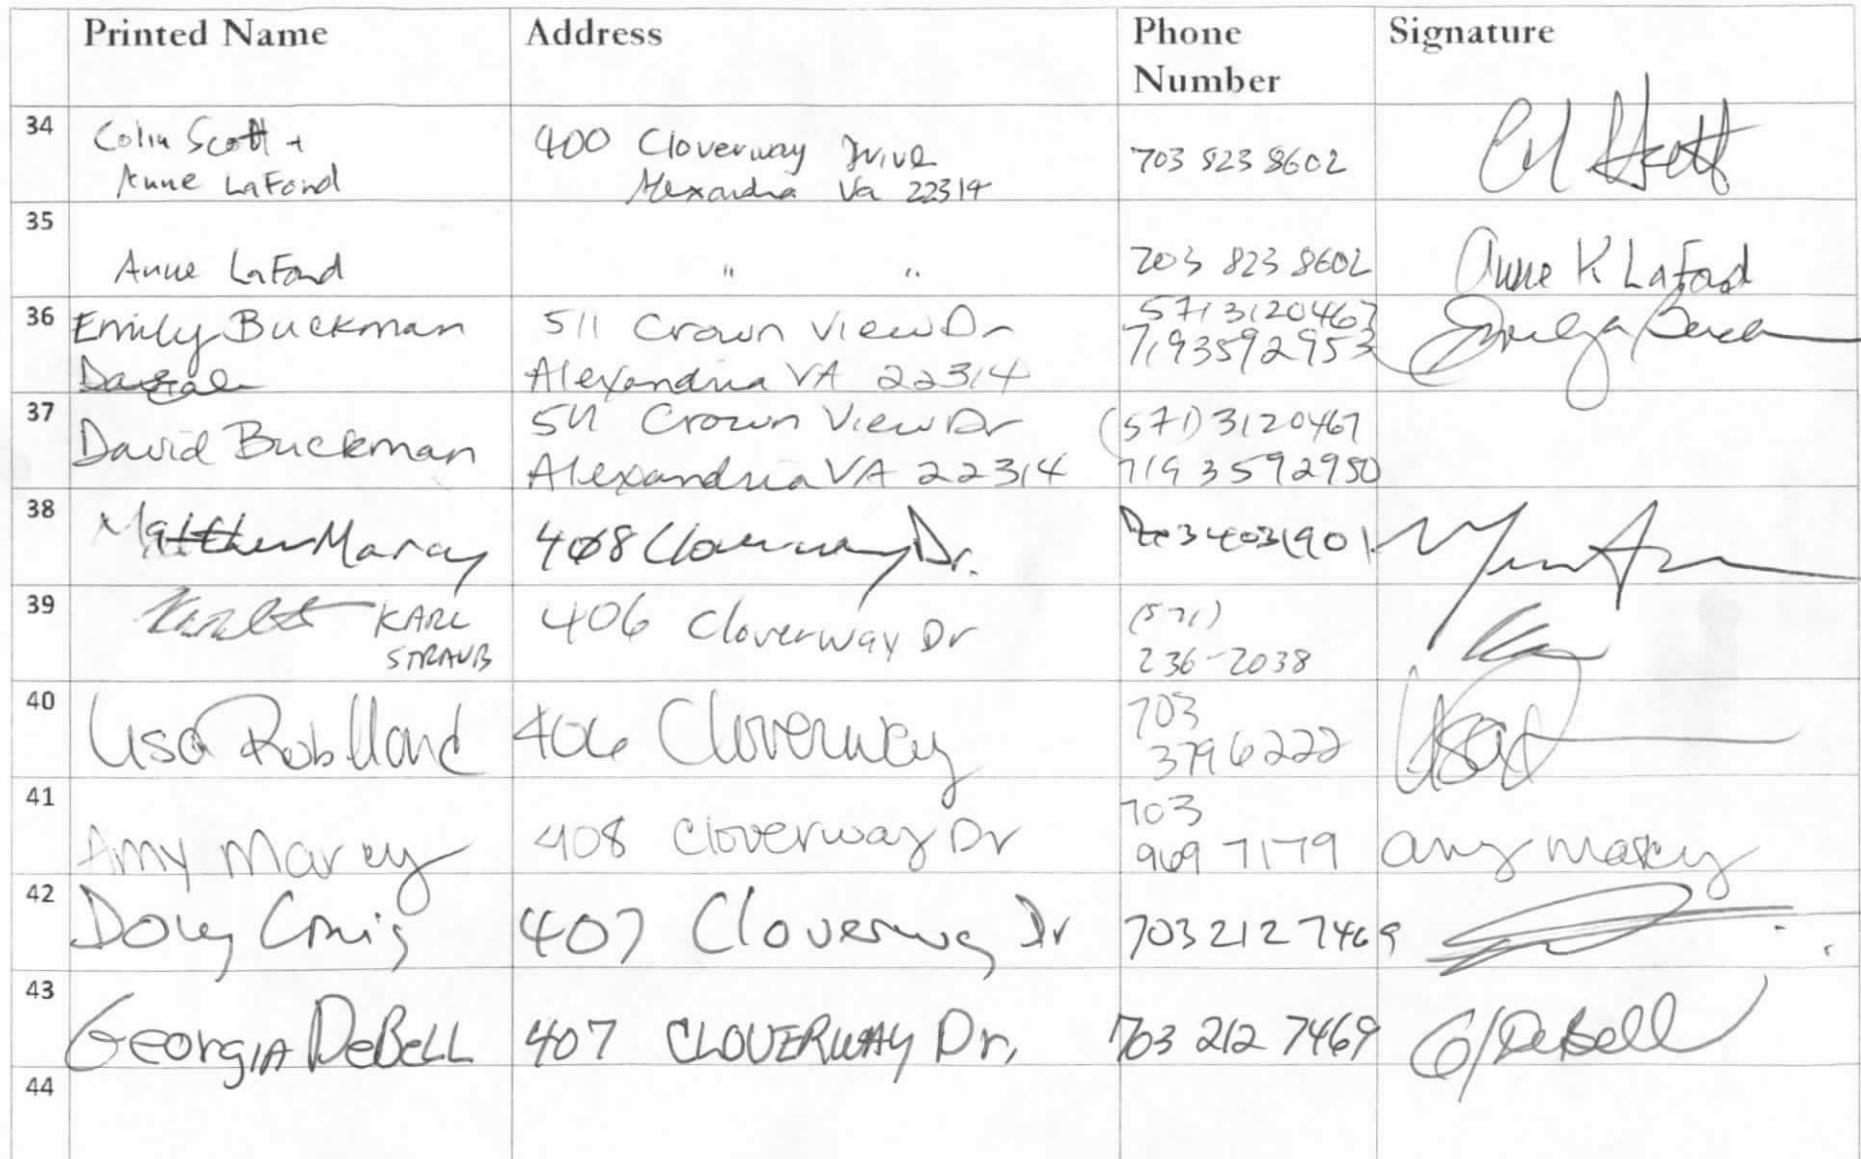 Printed Name Address Phone Number Signature
34 Colin Scott + Anne LaFond 400 Cloverway Drive Alexandria Va 22314 703 823 8602
35 Anne LaFond " " 703 823 8602 Anne K LaFond
36 Emily Buckman 511 Crown View Dr Alexandria VA 22314 571 3120467 7193592953
37 David Buckman 511 Crown View Dr Alexandria VA 22314 (571) 3120467 719 3592950
38 Matthew Marcy 408 Cloverway Dr. 703 4031901
39 KARL STRAUB 406 Cloverway Dr (571) 236-2038
40 Lisa 406 Cloverway 703 3796222
41 Amy Marcy 408 Cloverway Dr 703 969 7179 Amy Marcy
42 Doug Craig 407 Cloverway Dr 703 212 7469
43 Georgia DeBell 407 CLOVERWAY Dr. 703 212 7469 G DeBell
44